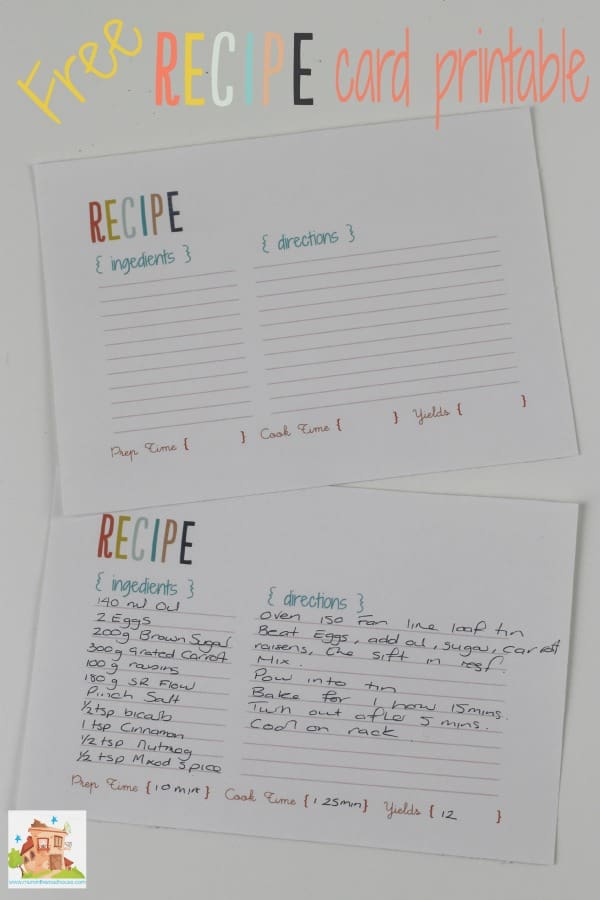 Free RECIPE card printable
RECIPE
{ ingedients }
{ directions }
Prep Time { } Cook Time { } Yields { }
RECIPE
{ ingedients }
140 ml Oil
2 Eggs
200g Brown Sugar
300g Grated Carrot
100 g raisins
180 g SR Flow
Pinch Salt
1/2 tsp bicarb
1 tsp Cinnamon
1/2 tsp Nutmeg
1/2 tsp Mixed Spice
{ directions }
Oven 150 Fan line loaf tin
Beat Eggs, add oil, sugar, carrot
raisens, the sift in rest.
Mix.
Pow into tin
Bake for 1 how 15mins.
Turn out after 5 mins.
Cool on rack
Prep Time { 10 mins } Cook Time { 1 25min } Yields { 12 }
www.muminthemadhouse.com